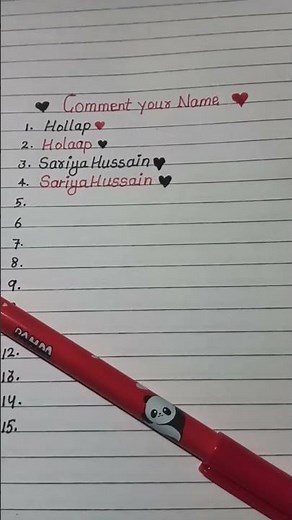 🖤 Comment your Name ❤️
1. Hollap ❤️
2. Holaap 🖤
3. Sariya Hussain 🖤
4. Sariya Hussain 🖤
5.
6
7.
8.
9.
PANDA
12.
13.
14.
15.